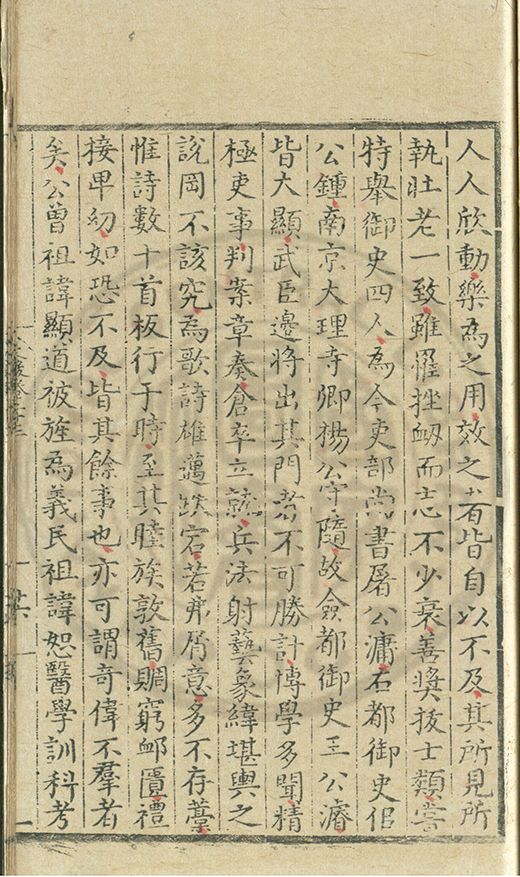 人人欣動樂為之用效之者皆自以不及其所見所
執壯老一致雖罹挫衂而志不少衰善奬拔士類嘗
特舉御史四人為今吏部尚書屠公滽右都御史佀
公鍾南京大理寺卿楊公守隨故僉都御史王公濬
皆大顯武臣邊將出其門者不可勝計博學多聞精
極吏事判案章奏倉卒立就兵法射藝象緯堪輿之
說罔不該究為歌詩雄邁跌宕若弗屑意多不存藁
惟詩數十首板行于時至其睦族敦舊賙窮卹匱禮
接卑幼如恐不及皆其餘事也亦可謂奇偉不羣者
矣公曾祖諱顯道被旌為義民祖諱恕醫學訓科考